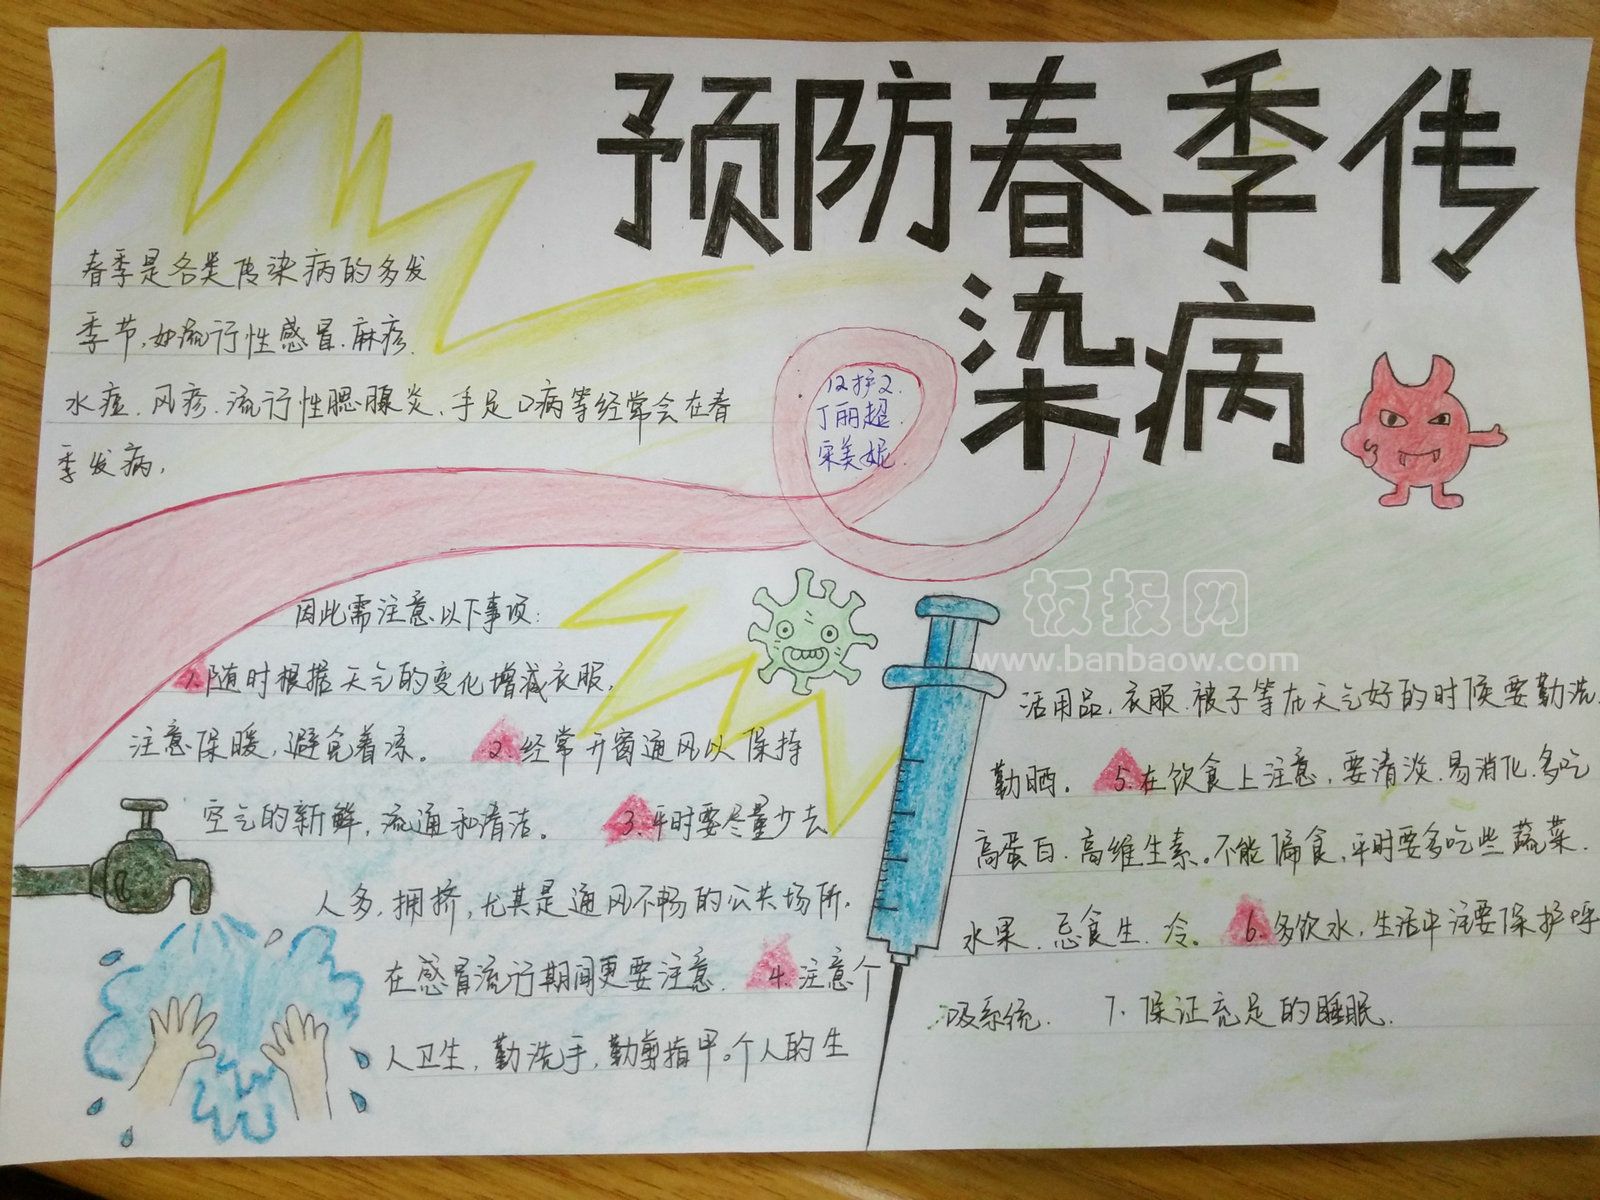 预防春季传
染病
春季是各类传染病的多发
季节,如流行性感冒、麻疹、
水痘、风疹、流行性腮腺炎、手足口病等经常会在春
季发病,
12护2.
丁丽超.
宋美妮.
因此需注意以下事项:
1.随时根据天气的变化增减衣服,
注意保暖,避免着凉。 2.经常开窗通风以保持
空气的新鲜,流通和清洁。 3.平时要尽量少去
人多,拥挤,尤其是通风不畅的公共场所,
在感冒流行期间更要注意. 4.注意个
人卫生,勤洗手,勤剪指甲。个人的生
板报网
www.banbaow.com
活用品、衣服、被子等在天气好的时候要勤洗、
勤晒。 5.在饮食上注意,要清淡、易消化、多吃
高蛋白、高维生素。不能偏食,平时要多吃些蔬菜、
水果、忌食生、冷。 6.多饮水,生活中注要保护呼
吸系统. 7.保证充足的睡眠.